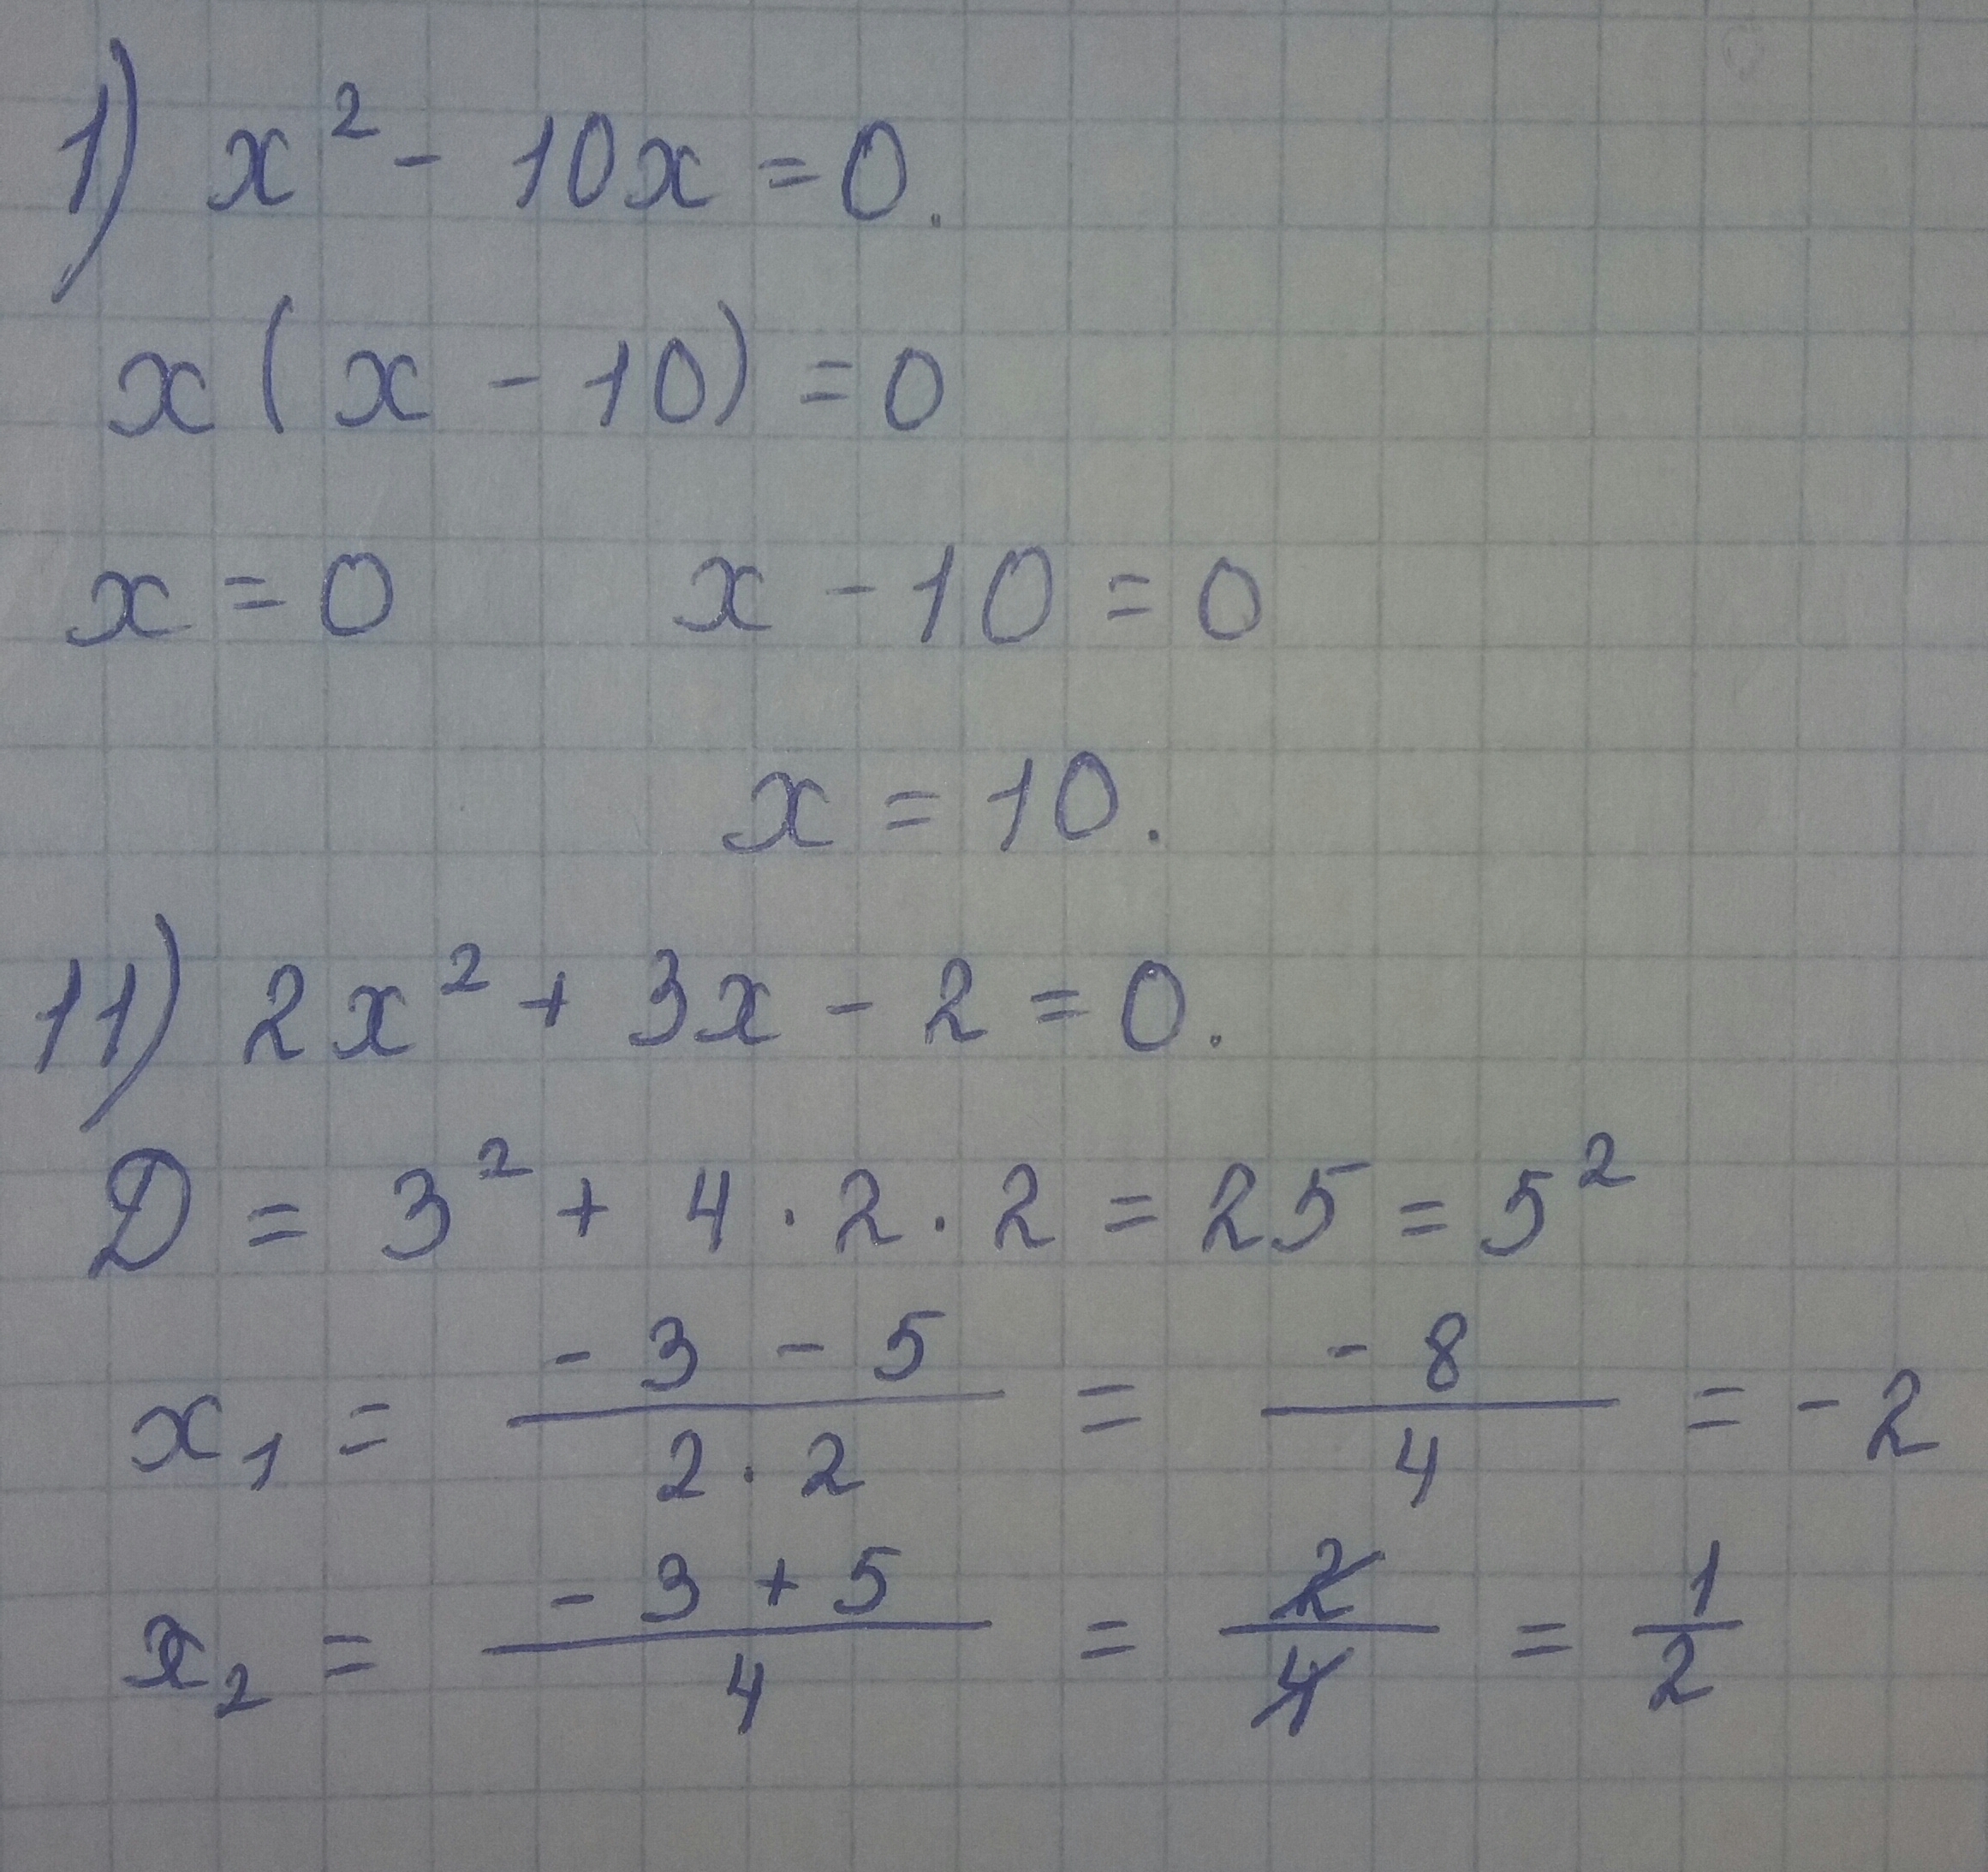 1) x² - 10x = 0.
x(x - 10) = 0
x = 0 x - 10 = 0
x = 10.
11) 2x² + 3x - 2 = 0.
D = 3² + 4 · 2 · 2 = 25 = 5²
x₁ = (-3 - 5)/(2 · 2) = -8/4 = -2
x₂ = (-3 + 5)/4 = 2/4 = 1/2